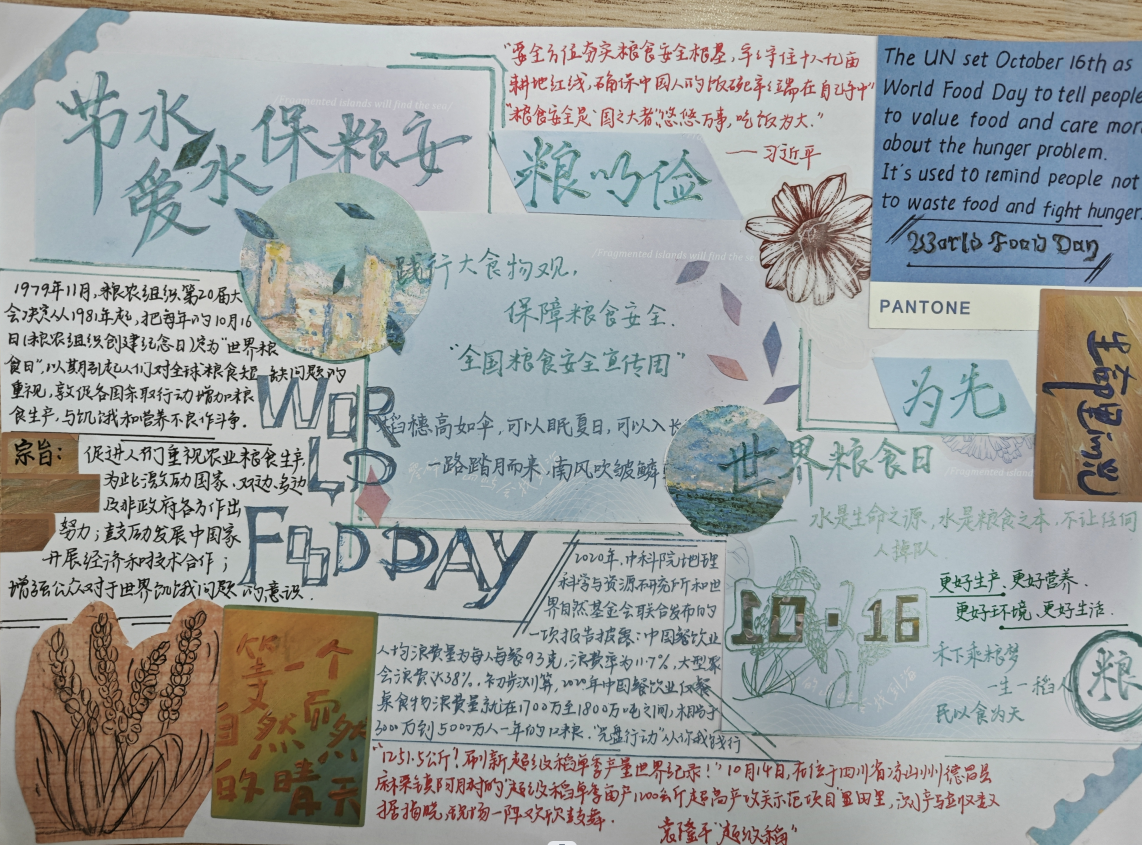 节水
爱水
保粮安
"要全方位夯实粮食安全根基，牢牢守住十八亿亩
耕地红线，确保中国人的饭碗牢牢端在自己手中"
"粮食安全是'国之大者'悠悠万事，吃饭为大."
——习近平
The UN set October 16th as
World Food Day to tell people
to value food and care mor
about the hunger problem.
It's used to remind people not
to waste food and fight hunger.
World Food Day
PANTONE
践行大食物观，
保障粮食安全.
"全国粮食安全宣传周"
稻穗高如伞，可以眠夏日，可以入长
一路踏月而来，南风吹皱鳞
为先
1979年11月，粮农组织第20届大
会决定从1981年起，把每年的10月16
日(粮农组织创建纪念日)定为"世界粮
食日"，以期引起人们对全球粮食短缺问题的
重视，敦促各国采取行动增加粮
食生产，与饥饿和营养不良作斗争.
宗旨：
促进人们重视农业粮食生产，
为此激励国家、双边、多边
及非政府各方作出
努力；鼓励发展中国家
开展经济和技术合作；
增强公众对于世界饥饿问题的意识.
WORLD
FOOD DAY
世界粮食日
水是生命之源，水是粮食之本，不让任何
人掉队.
10·16
更好生产、更好营养、
更好环境、更好生活.
禾下乘粮梦
一生一稻人
民以食为天
粮
2020年，中科院地理
科学与资源研究所和世
界自然基金会联合发布的
一项报告披露：中国餐饮业
人均浪费量为每人每餐93克，浪费率为11.7%，大型聚
会浪费达38%.
3000万到5000万人一年的口粮."光盘行动"从你我践行
"1251.5公斤！刷新超级稻单季产量世界纪录！"10月14日，在位于四川省凉山州德昌县
袁隆平"超级稻"
等一个
自然而然
的晴天